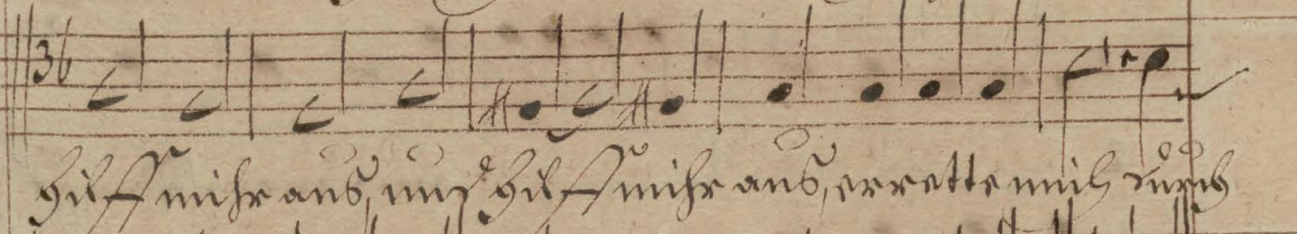 hilff mihr aus, und hilff mihr aus, errette mich durch